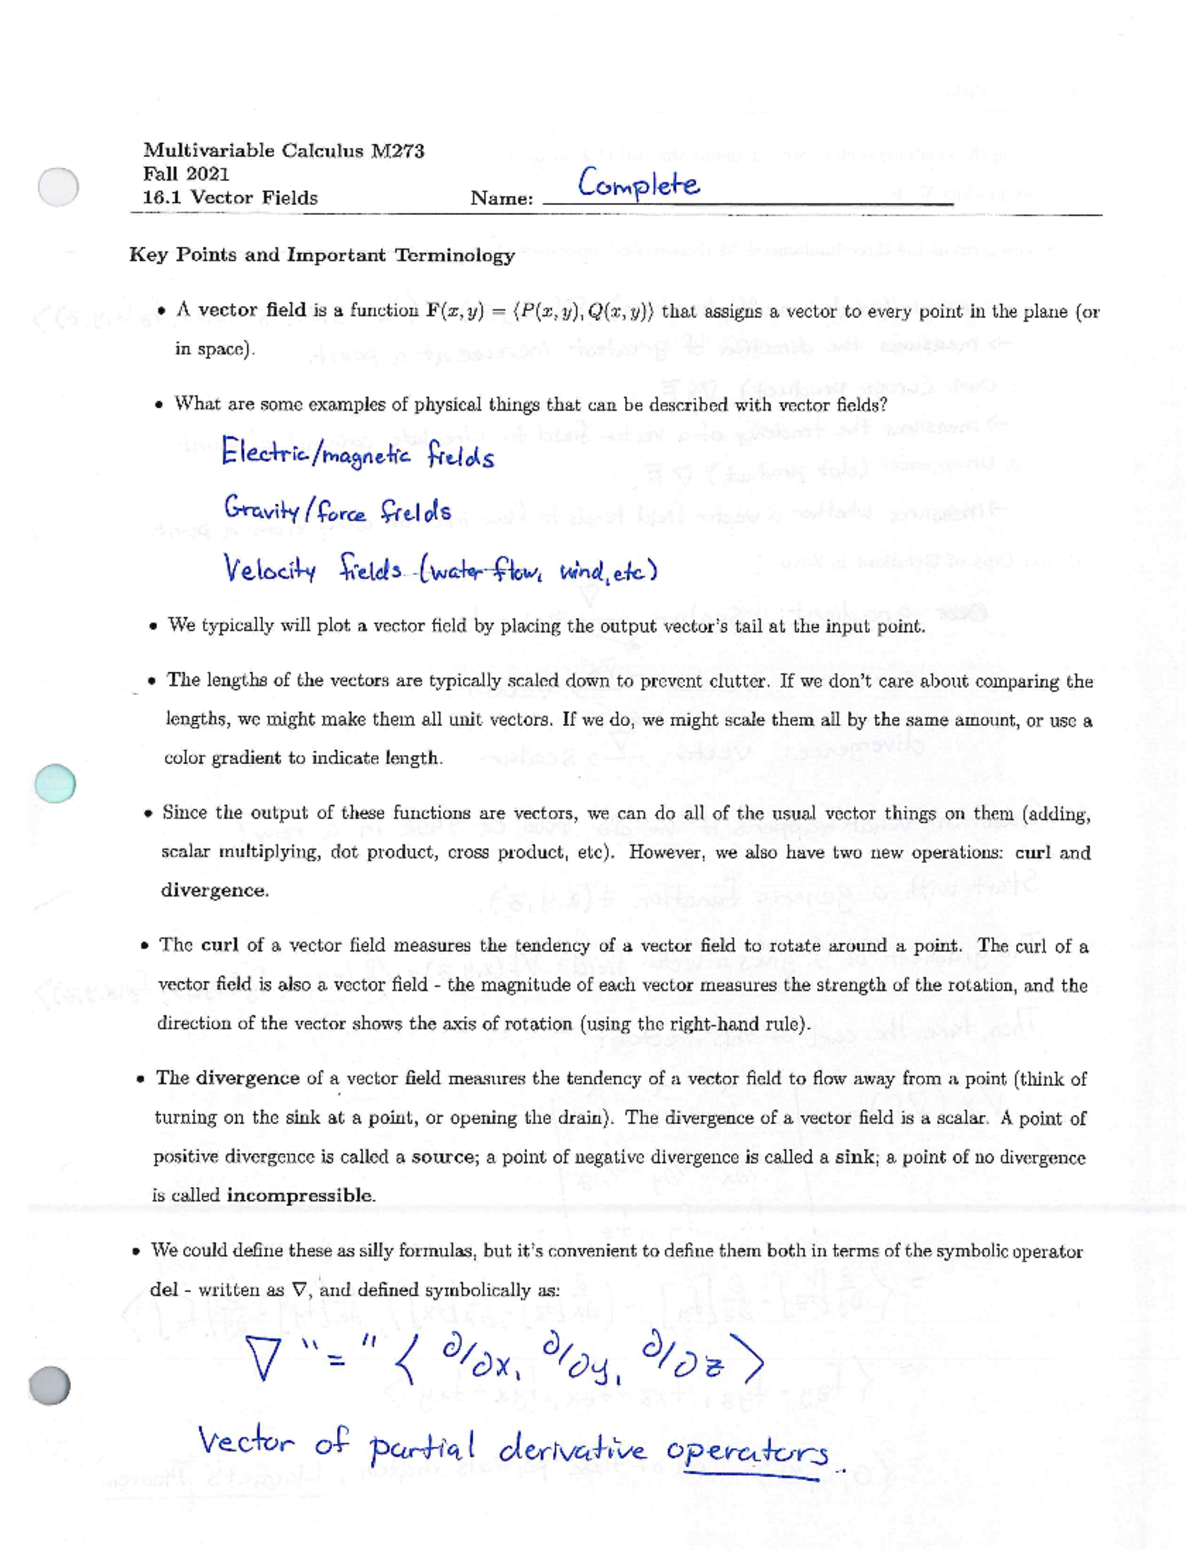 Multivariable Calculus M273
Fall 2021
16.1 Vector Fields Name: Complete
Key Points and Important Terminology
• A vector field is a function F(x, y) = ⟨P(x, y), Q(x, y)⟩ that assigns a vector to every point in the plane (or
in space).
• What are some examples of physical things that can be described with vector fields?
Electric/magnetic fields
Gravity/force fields
Velocity fields (water flow, wind, etc)
• We typically will plot a vector field by placing the output vector's tail at the input point.
• The lengths of the vectors are typically scaled down to prevent clutter. If we don't care about comparing the
lengths, we might make them all unit vectors. If we do, we might scale them all by the same amount, or use a
color gradient to indicate length.
• Since the output of these functions are vectors, we can do all of the usual vector things on them (adding,
scalar multiplying, dot product, cross product, etc). However, we also have two new operations: curl and
divergence.
• The curl of a vector field measures the tendency of a vector field to rotate around a point. The curl of a
vector field is also a vector field - the magnitude of each vector measures the strength of the rotation, and the
direction of the vector shows the axis of rotation (using the right-hand rule).
• The divergence of a vector field measures the tendency of a vector field to flow away from a point (think of
turning on the sink at a point, or opening the drain). The divergence of a vector field is a scalar. A point of
positive divergence is called a source; a point of negative divergence is called a sink; a point of no divergence
is called incompressible.
• We could define these as silly formulas, but it's convenient to define them both in terms of the symbolic operator
del - written as ∇, and defined symbolically as:
∇ "=" ⟨ ∂/∂x, ∂/∂y, ∂/∂z ⟩
Vector of partial derivative operators.